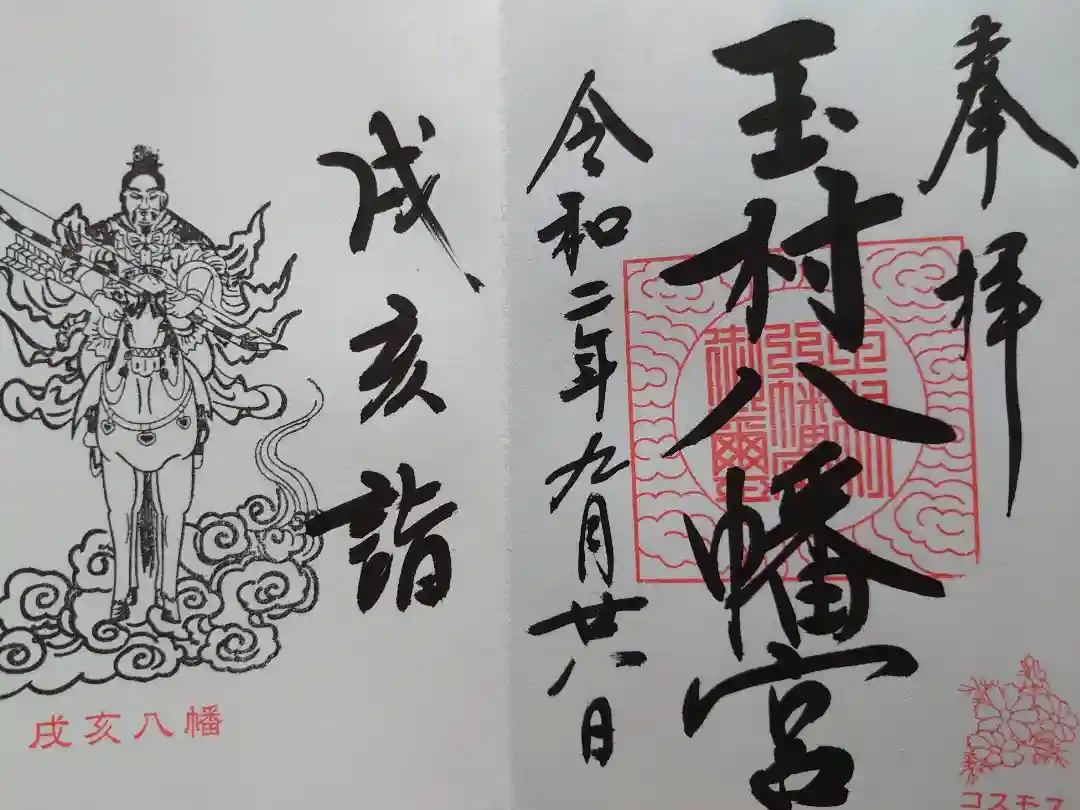 奉拝
玉村八幡宮
令和二年九月廿八日
コスモス
戌亥詣
戌亥八幡